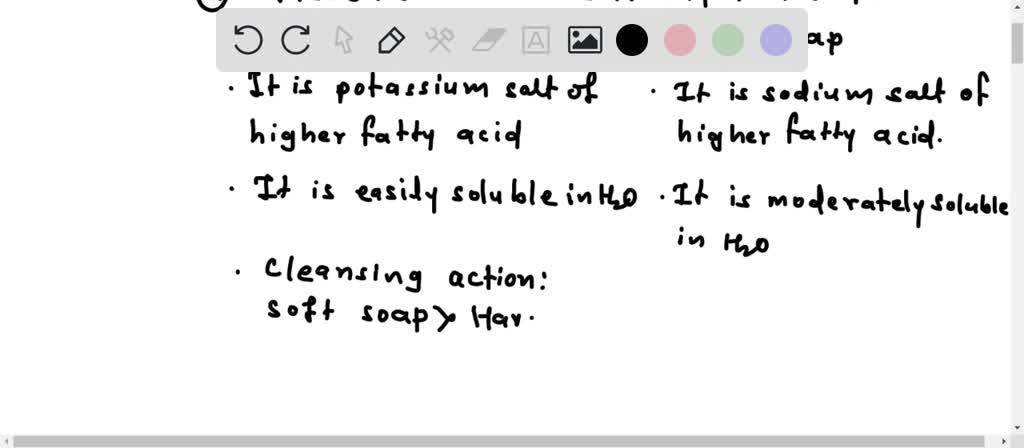 ap
· It is potassium salt of
higher fatty acid
· It is sodium salt of
higher fatty acid.
· It is easily soluble in H2O
· It is moderately soluble
in H2O
· Cleansing action:
soft soap > Har.